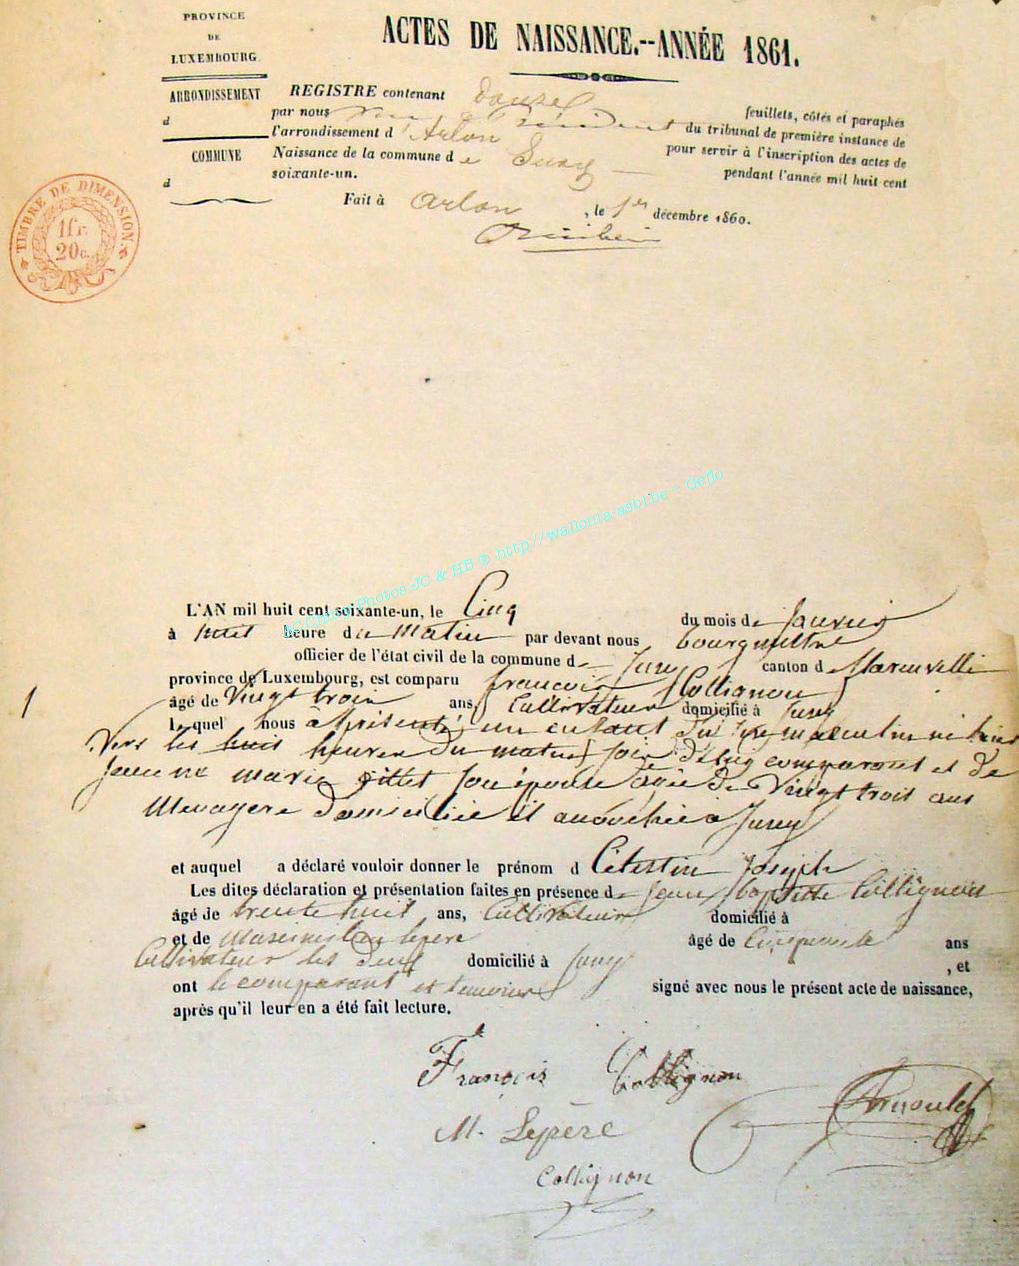 PROVINCE
DE
LUXEMBOURG.
ARRONDISSEMENT
d
COMMUNE
d
ACTES DE NAISSANCE.--ANNÉE 1861.
REGISTRE contenant douze feuillets, côtés et paraphés
par nous président du tribunal de première instance de
l'arrondissement d'Arlon pour servir à l'inscription des actes de
Naissance de la commune de Sury pendant l'année mil huit cent
soixante-un.
Fait à Arlon, le 1er décembre 1860.
TIMBRE DE DIMENSION.
1fr.
20c.
Photos JC & HB ® http://wallonia-asbl.be - deflo
1
L'AN mil huit cent soixante-un, le Cinq du mois de Janvier
à huit heure du Matin par devant nous bourgmestre
officier de l'état civil de la commune de Juny canton d
province de Luxembourg, est comparu François Collignon
âgé de Vingt trois ans, Cultivateur domicilié à Juny
lequel nous à présenté un enfant du sexe masculin né hier
vers les huit heures du matin, de lui comparant et de
Jeanne marie Gillet son épouse agée de Vingt trois ans
Menagere domiciliée et accouchée à Juny
et auquel a déclaré vouloir donner le prénom d Célestin Joseph
Les dites déclaration et présentation faites en présence de Jean Baptiste Collignon
âgé de trente huit ans, Cultivateur domicilié à
et de Lepère âgé de Cinquante ans
Cultivateur les deux domicilié à Juny , et
ont le comparant et temoins signé avec nous le présent acte de naissance,
après qu'il leur en a été fait lecture.
François Collignon
Arnould
M. Lepère
Collignon